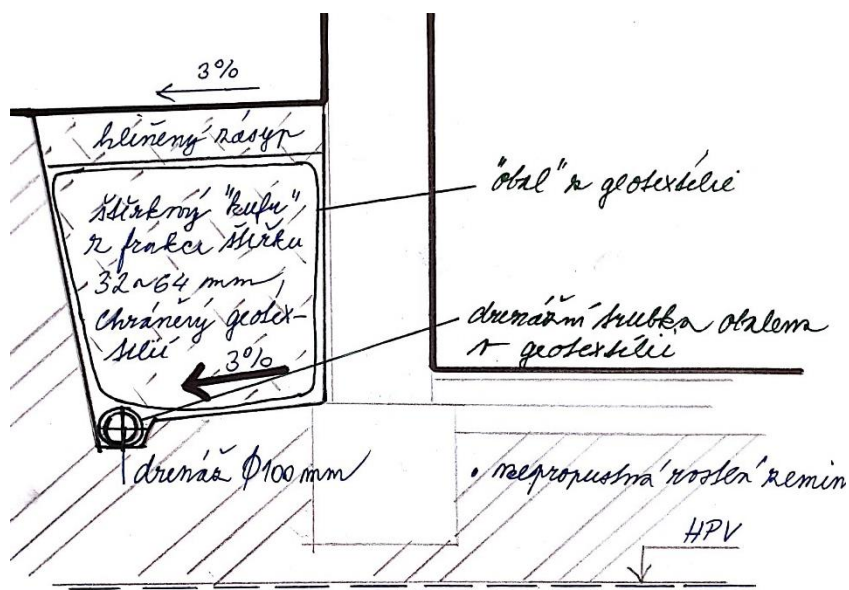 3%
hliněný zásyp
štěrkový "kufr"
z frakce štěrku
32~64 mm,
chráněný geotex-
tilií
3%
"obal" z geotextílie
drenážní trubka obalena
v geotextílii
drenáž Ø100 mm
• nepropustná rostlá zemin
HPV